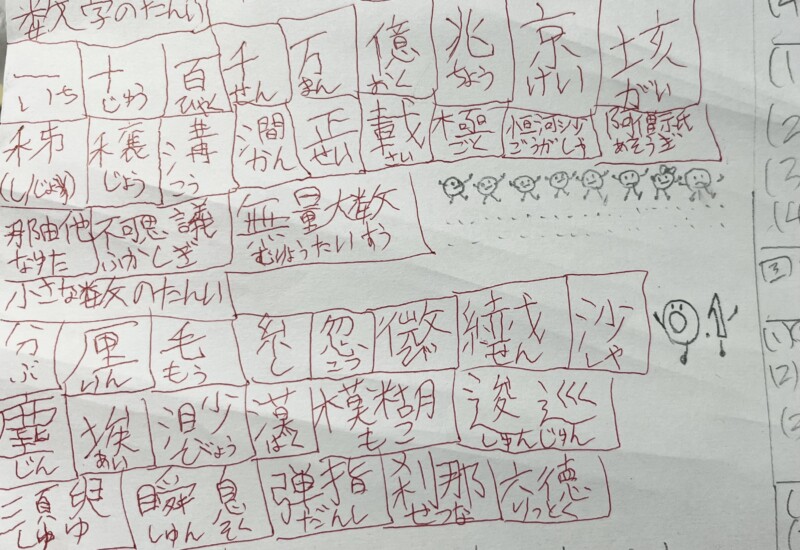 数字のたんい
一 十 百 千 万 億 兆 京 垓
いち じゅう ひゃく せん まん おく ちょう けい がい
𥝱 穣 溝 澗 正 載 極 恒河沙 阿僧祇
(し/じょ) じょう こう かん せい さい ごく ごうがしゃ あそうぎ
那由他 不可思議 無量大数
なゆた ふかしぎ むりょうたいすう
小さな数のたんい
分 厘 毛 糸 忽 微 繊 沙
ぶ りん もう し こう び せん しゃ
0.1
塵 埃 渺 漠 模糊 逡巡
じん あい びょう ばく もこ しゅんじゅん
須臾 瞬息 弾指 刹那 六徳
しゅゆ しゅんそく だんし せつな りっとく